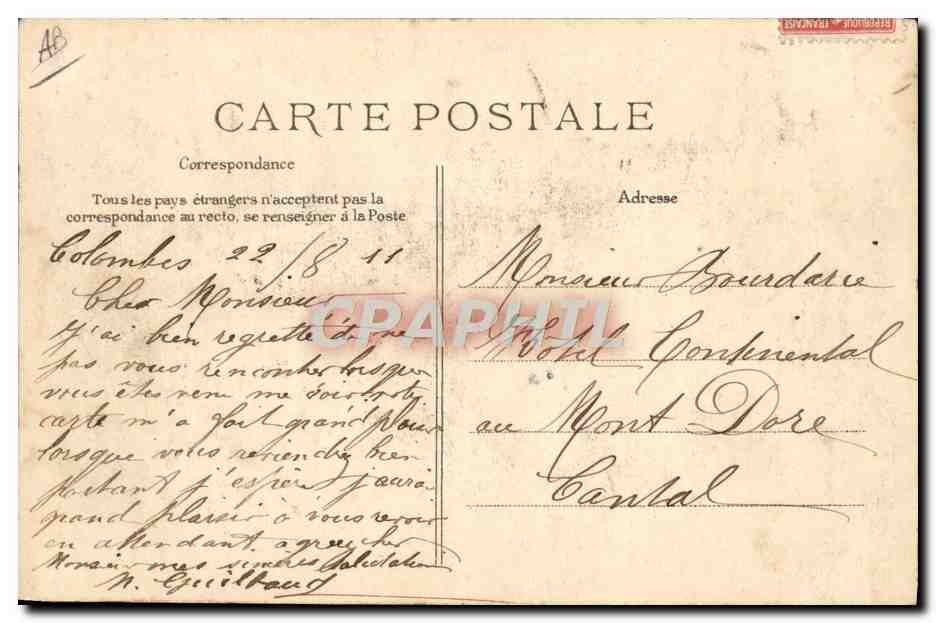 AB
REPUBLIQUE FRANÇAISE
CARTE POSTALE
Correspondance
Tous les pays étrangers n'acceptent pas la
correspondance au recto, se renseigner à la Poste
Colombes 22/8 11
Cher Monsieur
J'ai bien regretté de ne
pas vous rencontrer lorsque
vous êtes venu me voir votre
carte m'a fait grand plaisir
lorsque vous reviendrez bien
portant j'espère j'aurai
grand plaisir à vous revoir
en attendant agréez cher
Monsieur mes sincères salutations
N. Guilbaud
Adresse
Monsieur Bourdarie
Hotel Continental
au Mont Dore
Cantal
CPAPHIL